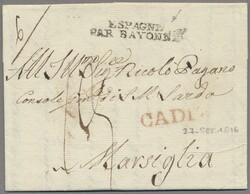 ESPAGNE
PAR BAYONNE
All' Ill.mo
Sig. Nicolò Pagano
Console di S. M. Sarda
CADIZ
27 SET. 1816
Marsiglia